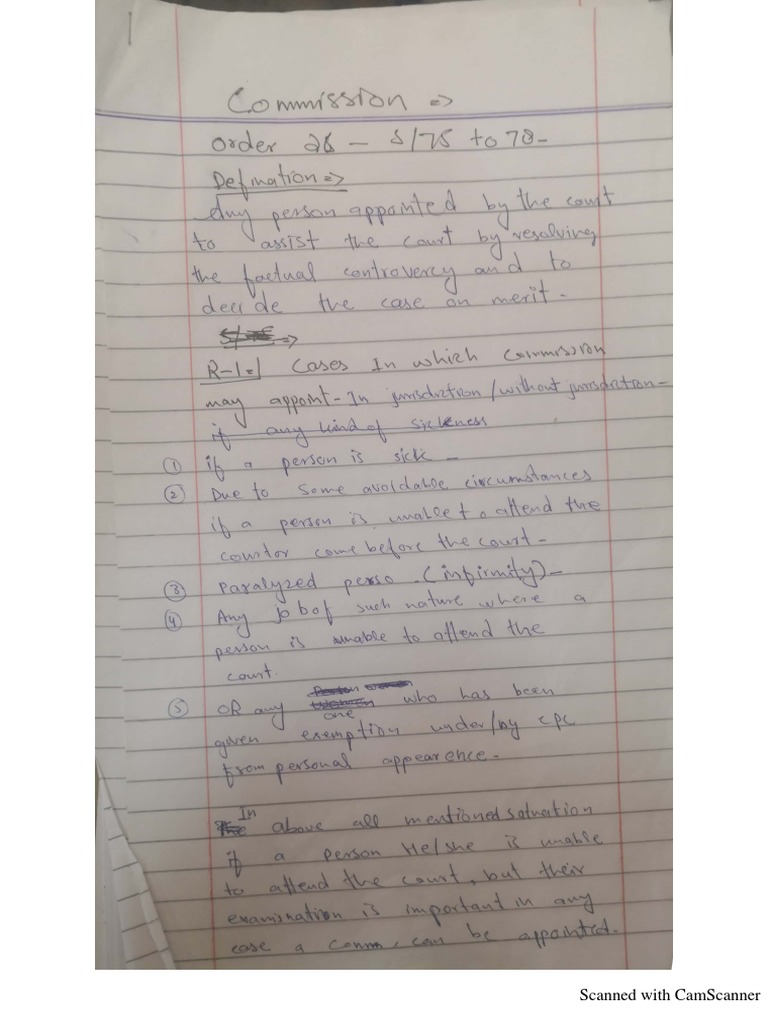 Commission =>
Order 26 - S/75 to 78-
Defination =>
Any person appointed by the court
to assist the court by resolving
the factual controvercy and to
decide the case on merit-
=>
R-1=| Cases In which Commission
may appoint- In jurisdiction / without jurisdiction-
if any kind of sickness
① if a person is sick -
② Due to some avoidable circumstances
if a person is unable to attend the
court or come before the court-
③ Paralyzed perso . (infirmity)-
④ Any job of such nature where a
person is unable to attend the
court.
⑤ OR any one who has been
given exemption under/by cpc
from personal appearence-
In above all mentioned satuation
if a person He/she is unable
to attend the court, but their
examination is important in any
case a comm. can be appointed.
Scanned with CamScanner